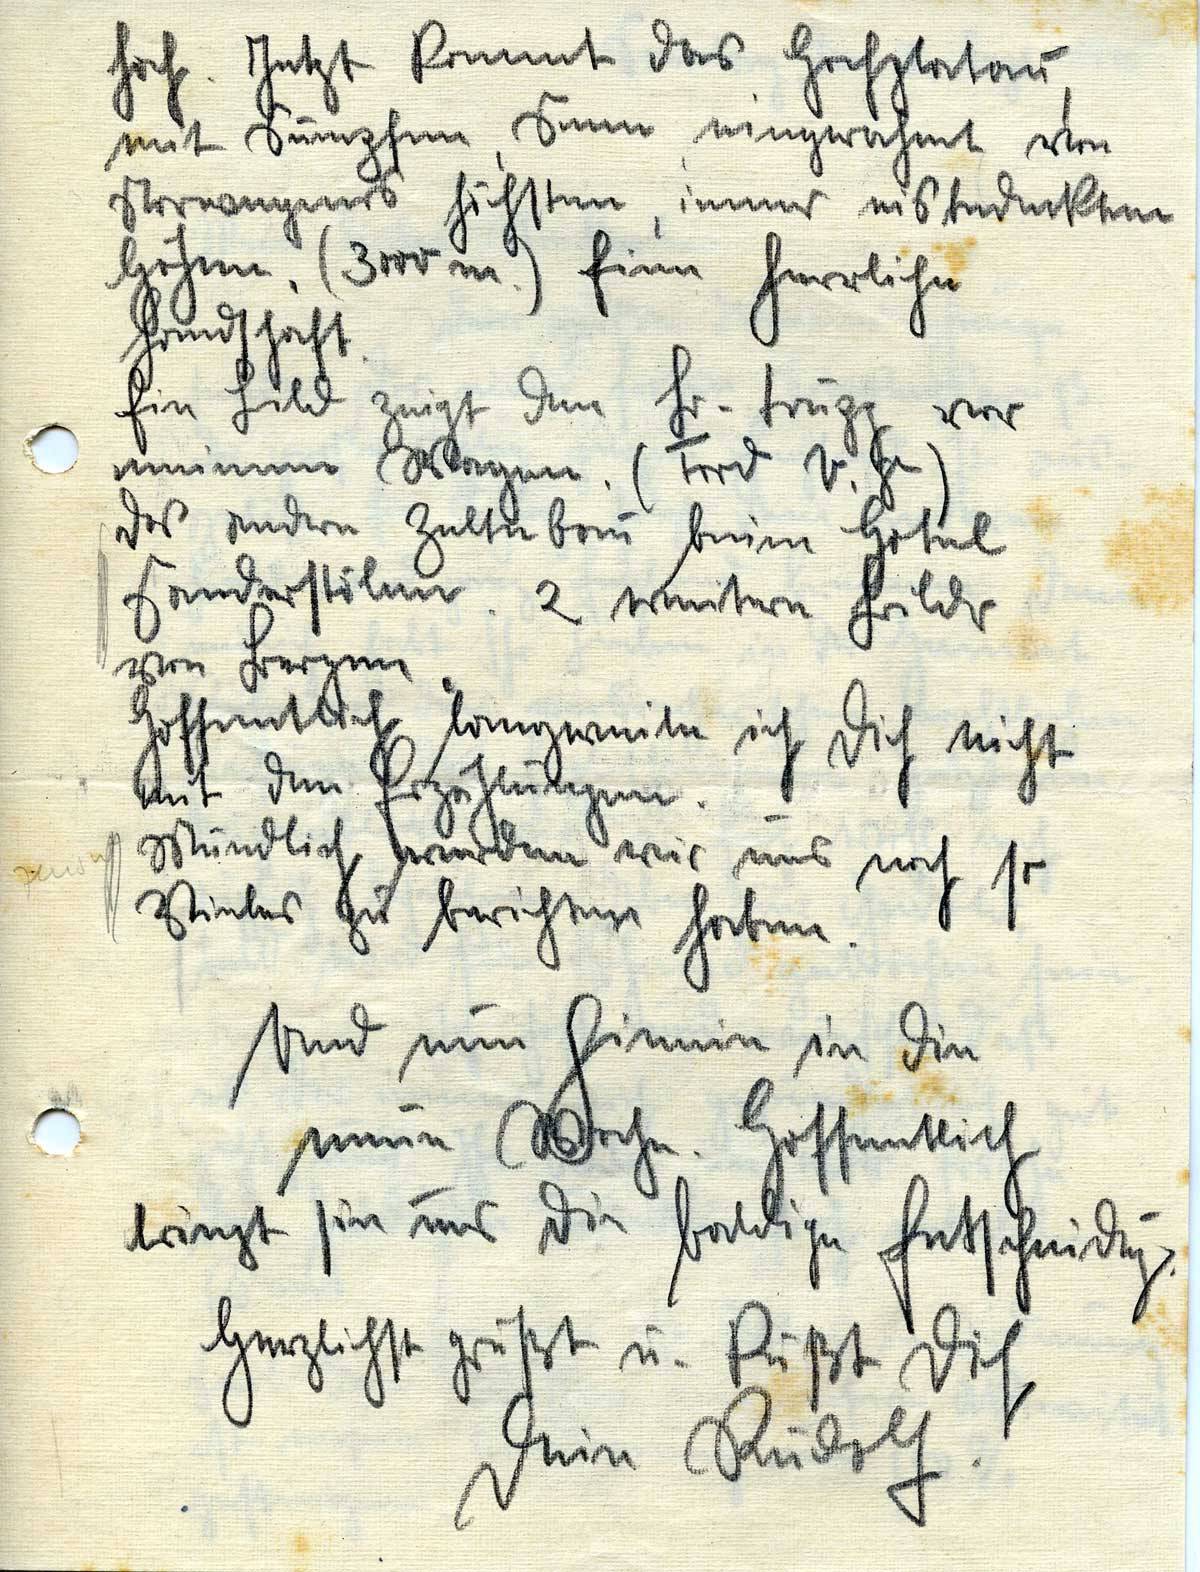 hoch. Jetzt kommt das Hochplateau,
mit Sümpfen, Seen, eingerahmt von
Norwegens höchsten, immer eisbedeckten
Höhen. (3000 m.) Eine herrliche
Landschaft.
Ein Bild zeigt den Fu-Trupp vor
meinem Wagen. (Ford V. 8)
das andere Zeltbau beim Hotel
Sanderstölen. 2 weitere Bilder
von Bergen.
Hoffentlich langweile ich Dich nicht
mit den Erzählungen.
Mündlich werden wir uns noch so
Vieles zu berichten haben.
Und nun hinein in die
neue Woche. Hoffentlich
bringt sie uns die baldige Entscheidung.
Herzlichst grüßt u. küßt Dich
Dein Rudolf.